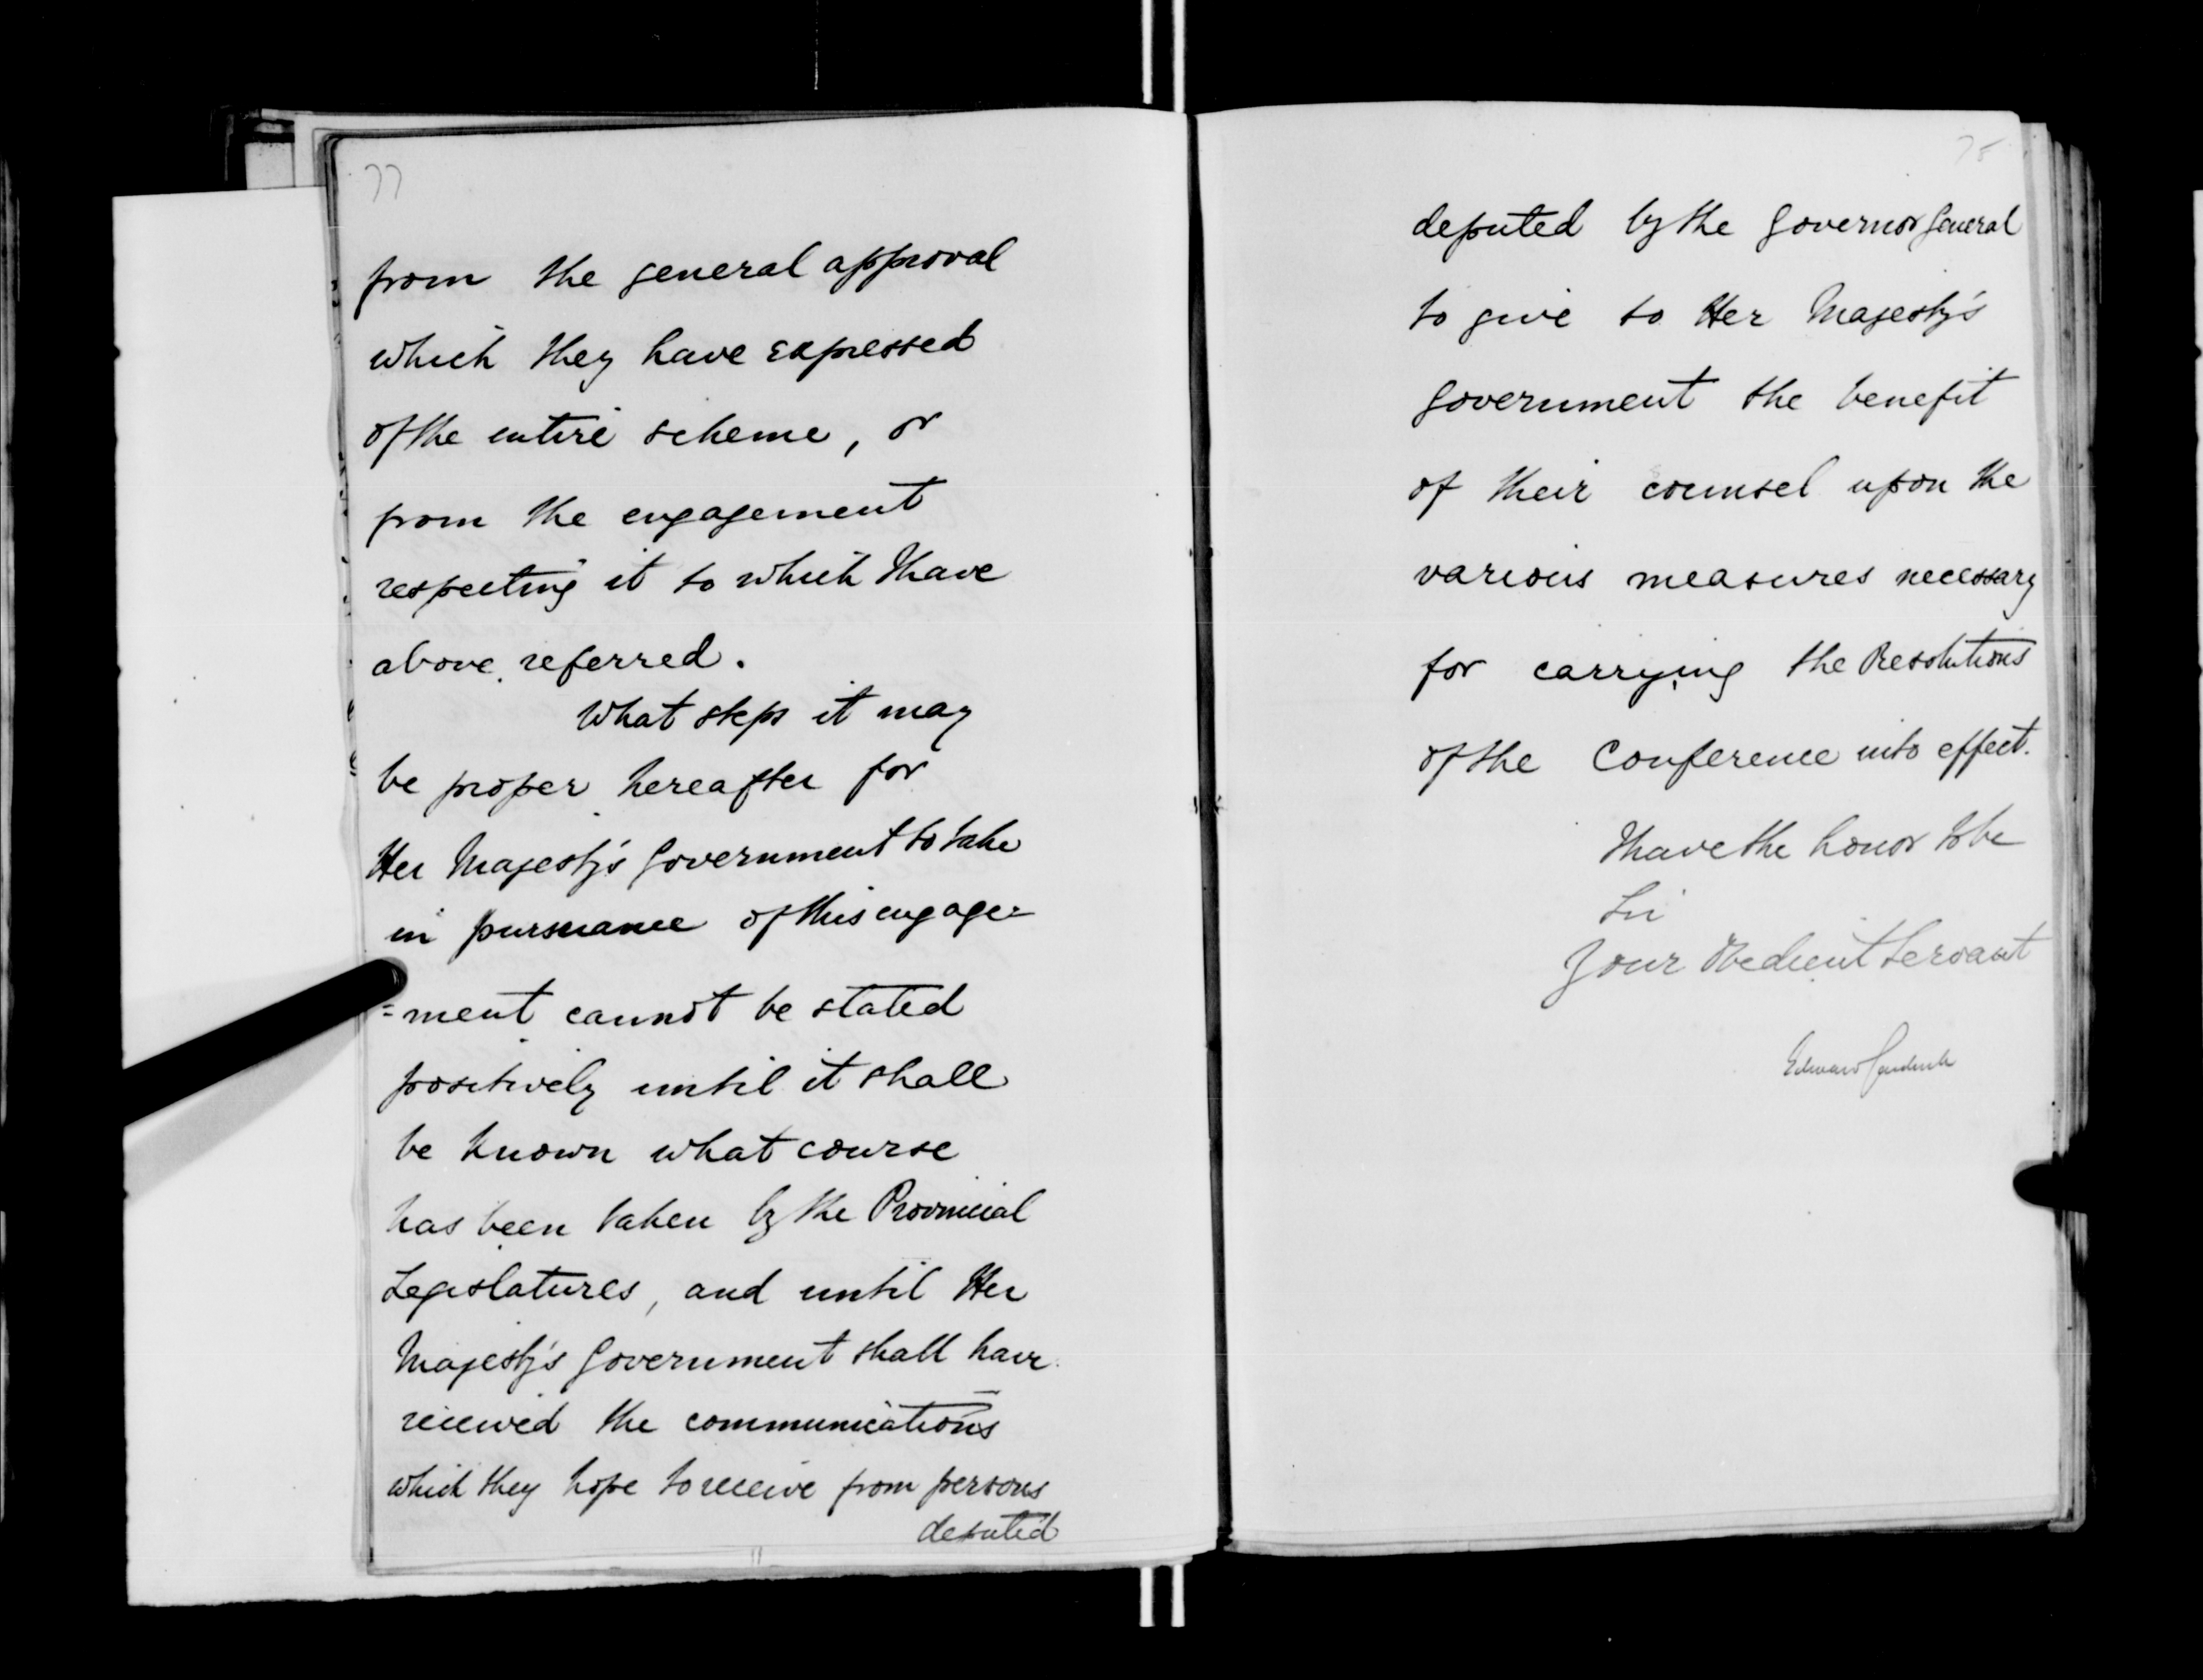 77
from the general approval
which they have expressed
of the entire scheme, or
from the engagement
respecting it to which I have
above referred.
What steps it may
be proper hereafter for
Her Majesty's Government to take
in pursuance of this engage=
=ment cannot be stated
positively until it shall
be known what course
has been taken by the Provincial
Legislatures, and until Her
Majesty's Government shall have
received the communications
which they hope to receive from persons
deputed
deputed by the Governor General
to give to Her Majesty's
Government the benefit
of their counsel upon the
various measures necessary
for carrying the Resolutions
of the Conference into effect.
I have the honor to be
Sir
Your Obedient Servant
Edward Cardwell